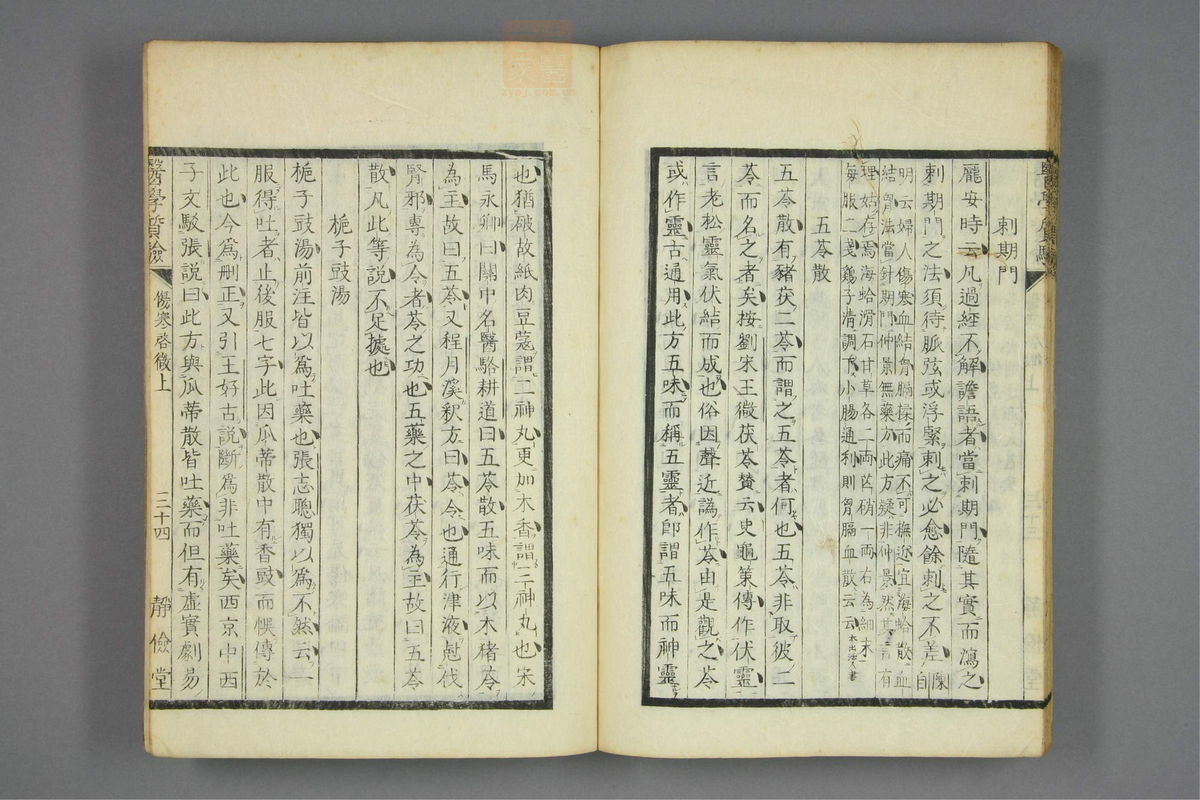 刺期門
龐安時云凡過經不解譫語者當刺期門隨其實而瀉之
刺期門之法須待脈弦或浮緊刺之必愈餘刺之不差陳自
明云婦人傷寒血結胷膈揉而痛不可撫近宜海蛤散血
結胷法當針期門仲景無藥方此方疑非仲景然其言有
理姑存焉海蛤滑石甘草各二兩芒硝一兩右為細末
每服二戔雞子清調下小腸通利則胷膈血散云云本出活人書
五苓散
五苓散有豬茯二苓而謂之五苓者何也五苓非取彼二
苓而名之者矣按劉宋王微茯苓贊云史龜策傳作伏靈
言老松靈氣伏結而成也俗因聲近譌作苓由是觀之苓
或作靈古通用此方五味而稱五靈者卽謂五味而神靈
也猶破故紙肉豆蔻謂二神丸更加木香謂三神丸也宋
馬永卿曰關中名醫駱耕道曰五苓散五味而以木豬苓
為主故曰五苓又程月溪釋方曰苓令也通行津液尅伐
腎邪專為令者苓之功也五藥之中茯苓為主故曰五苓
散凡此等說不足據也
梔子豉湯
梔子豉湯前注皆以爲吐藥也張志聰獨以爲不然云一
服得吐者止後服七字此因瓜蒂散中有香豉而悞傳於
此也今爲刪正又引王好古說斷爲非吐藥矣西京中西
子文駁張說曰此方與瓜蒂散皆吐藥而但有虛實劇易
醫學質驗
傷寒啓微上
三十四
靜儉堂